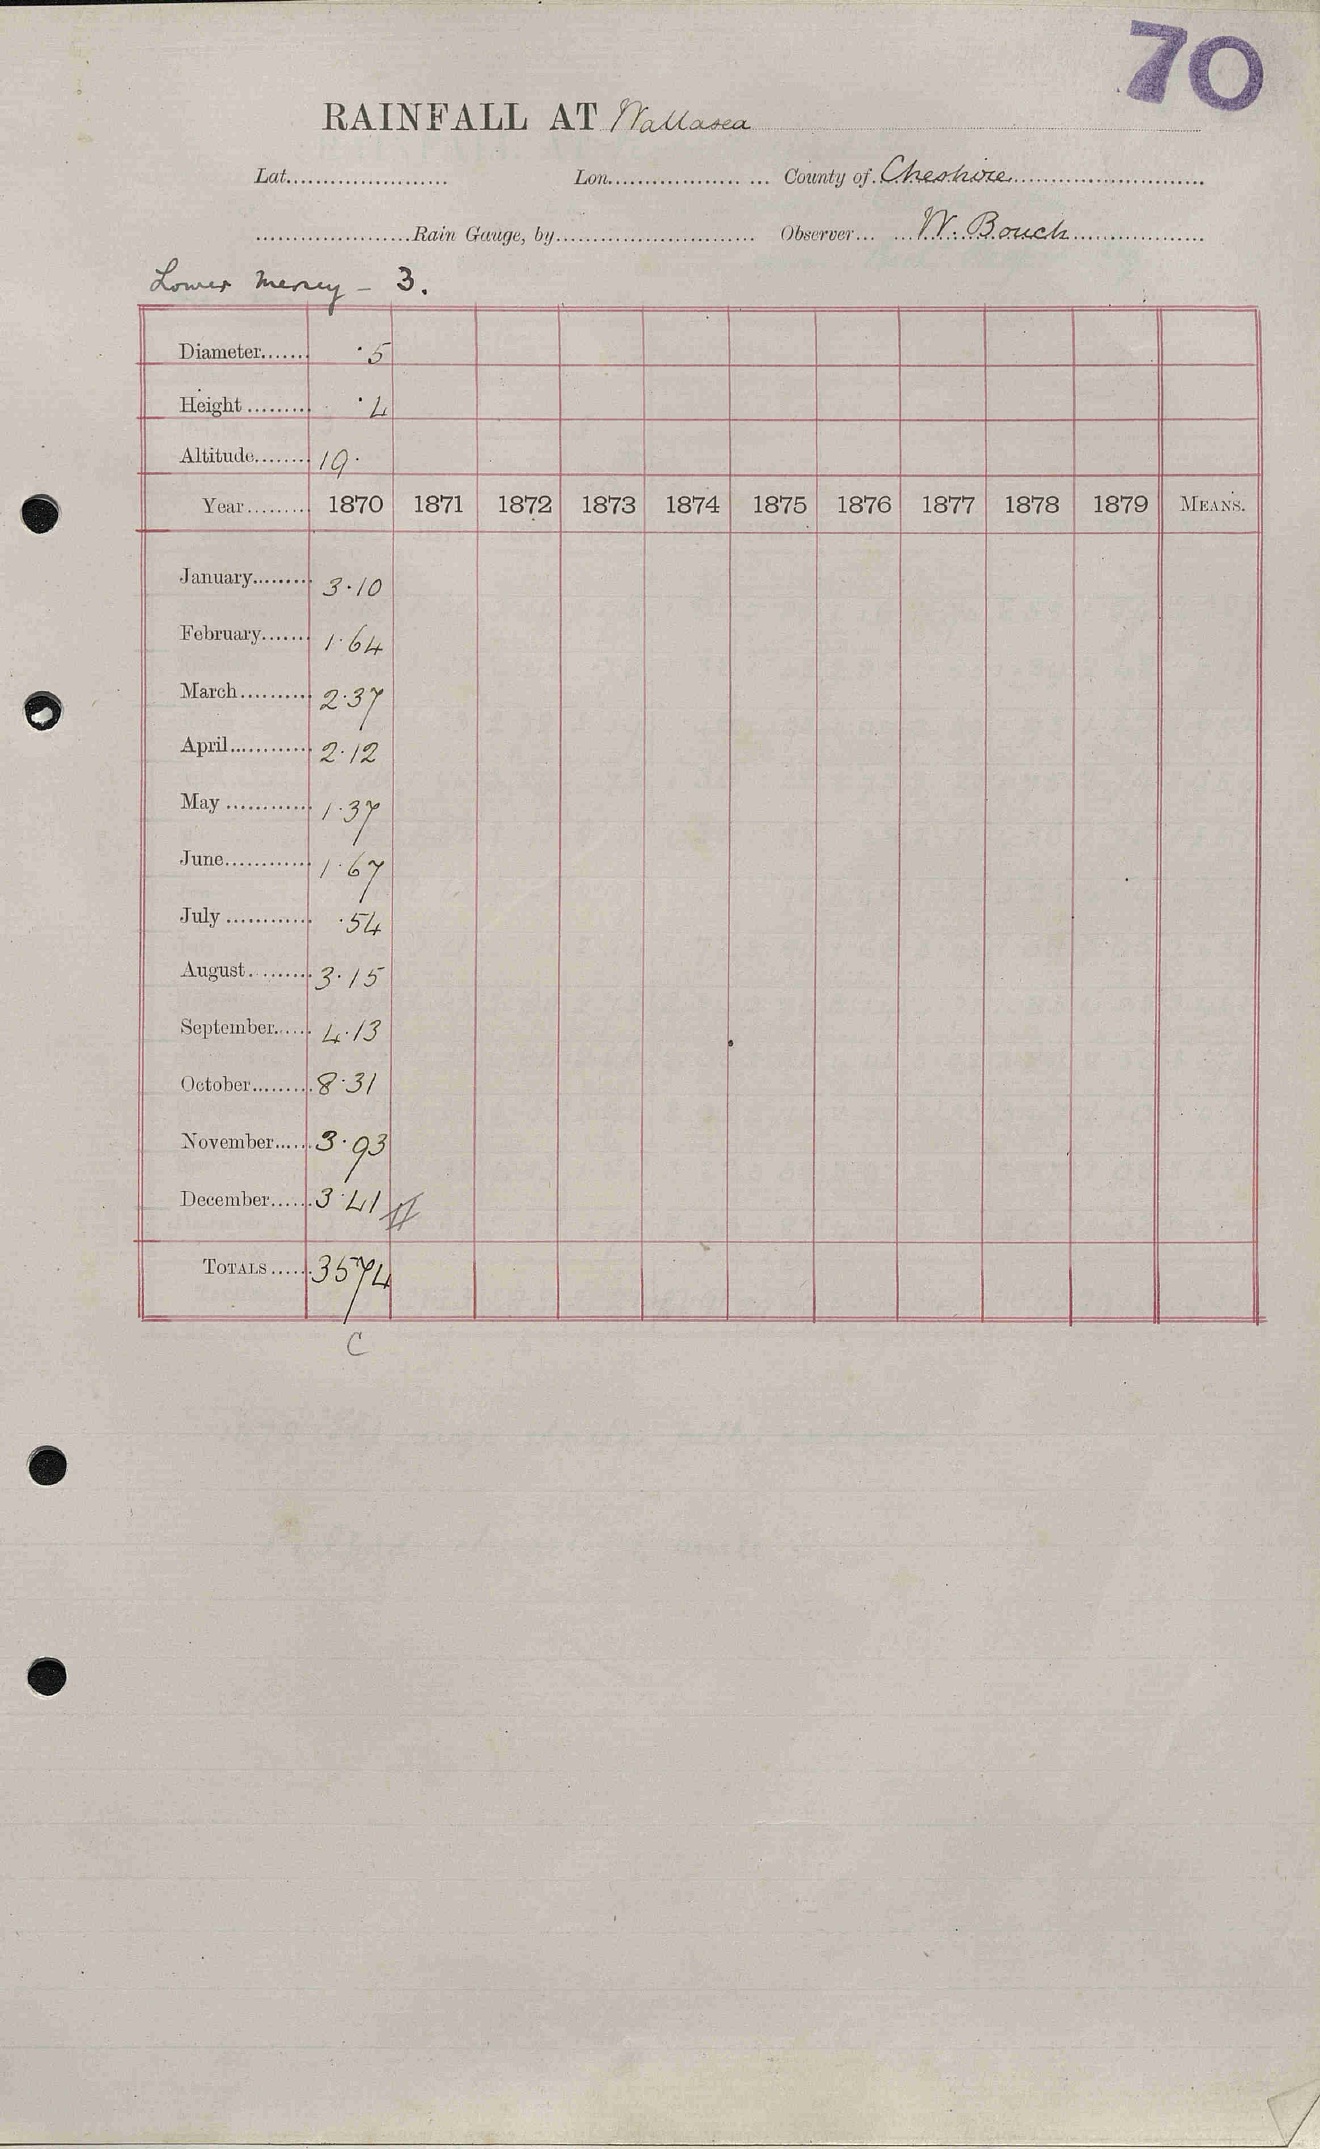 70
RAINFALL AT Wallasea
Lat. Lon. County of Cheshire
Rain Gauge, by Observer W. Bouch
Lower Mersey - 3.
Diameter ·5
Height ·4
Altitude 19·
Year 1870 1871 1872 1873 1874 1875 1876 1877 1878 1879 MEANS.
January 3·10
February 1·64
March 2·37
April 2·12
May 1·37
June 1·67
July ·54
August 3·15
September 4·13
October 8·31
November 3·93
December 3·41
TOTALS 3574
C